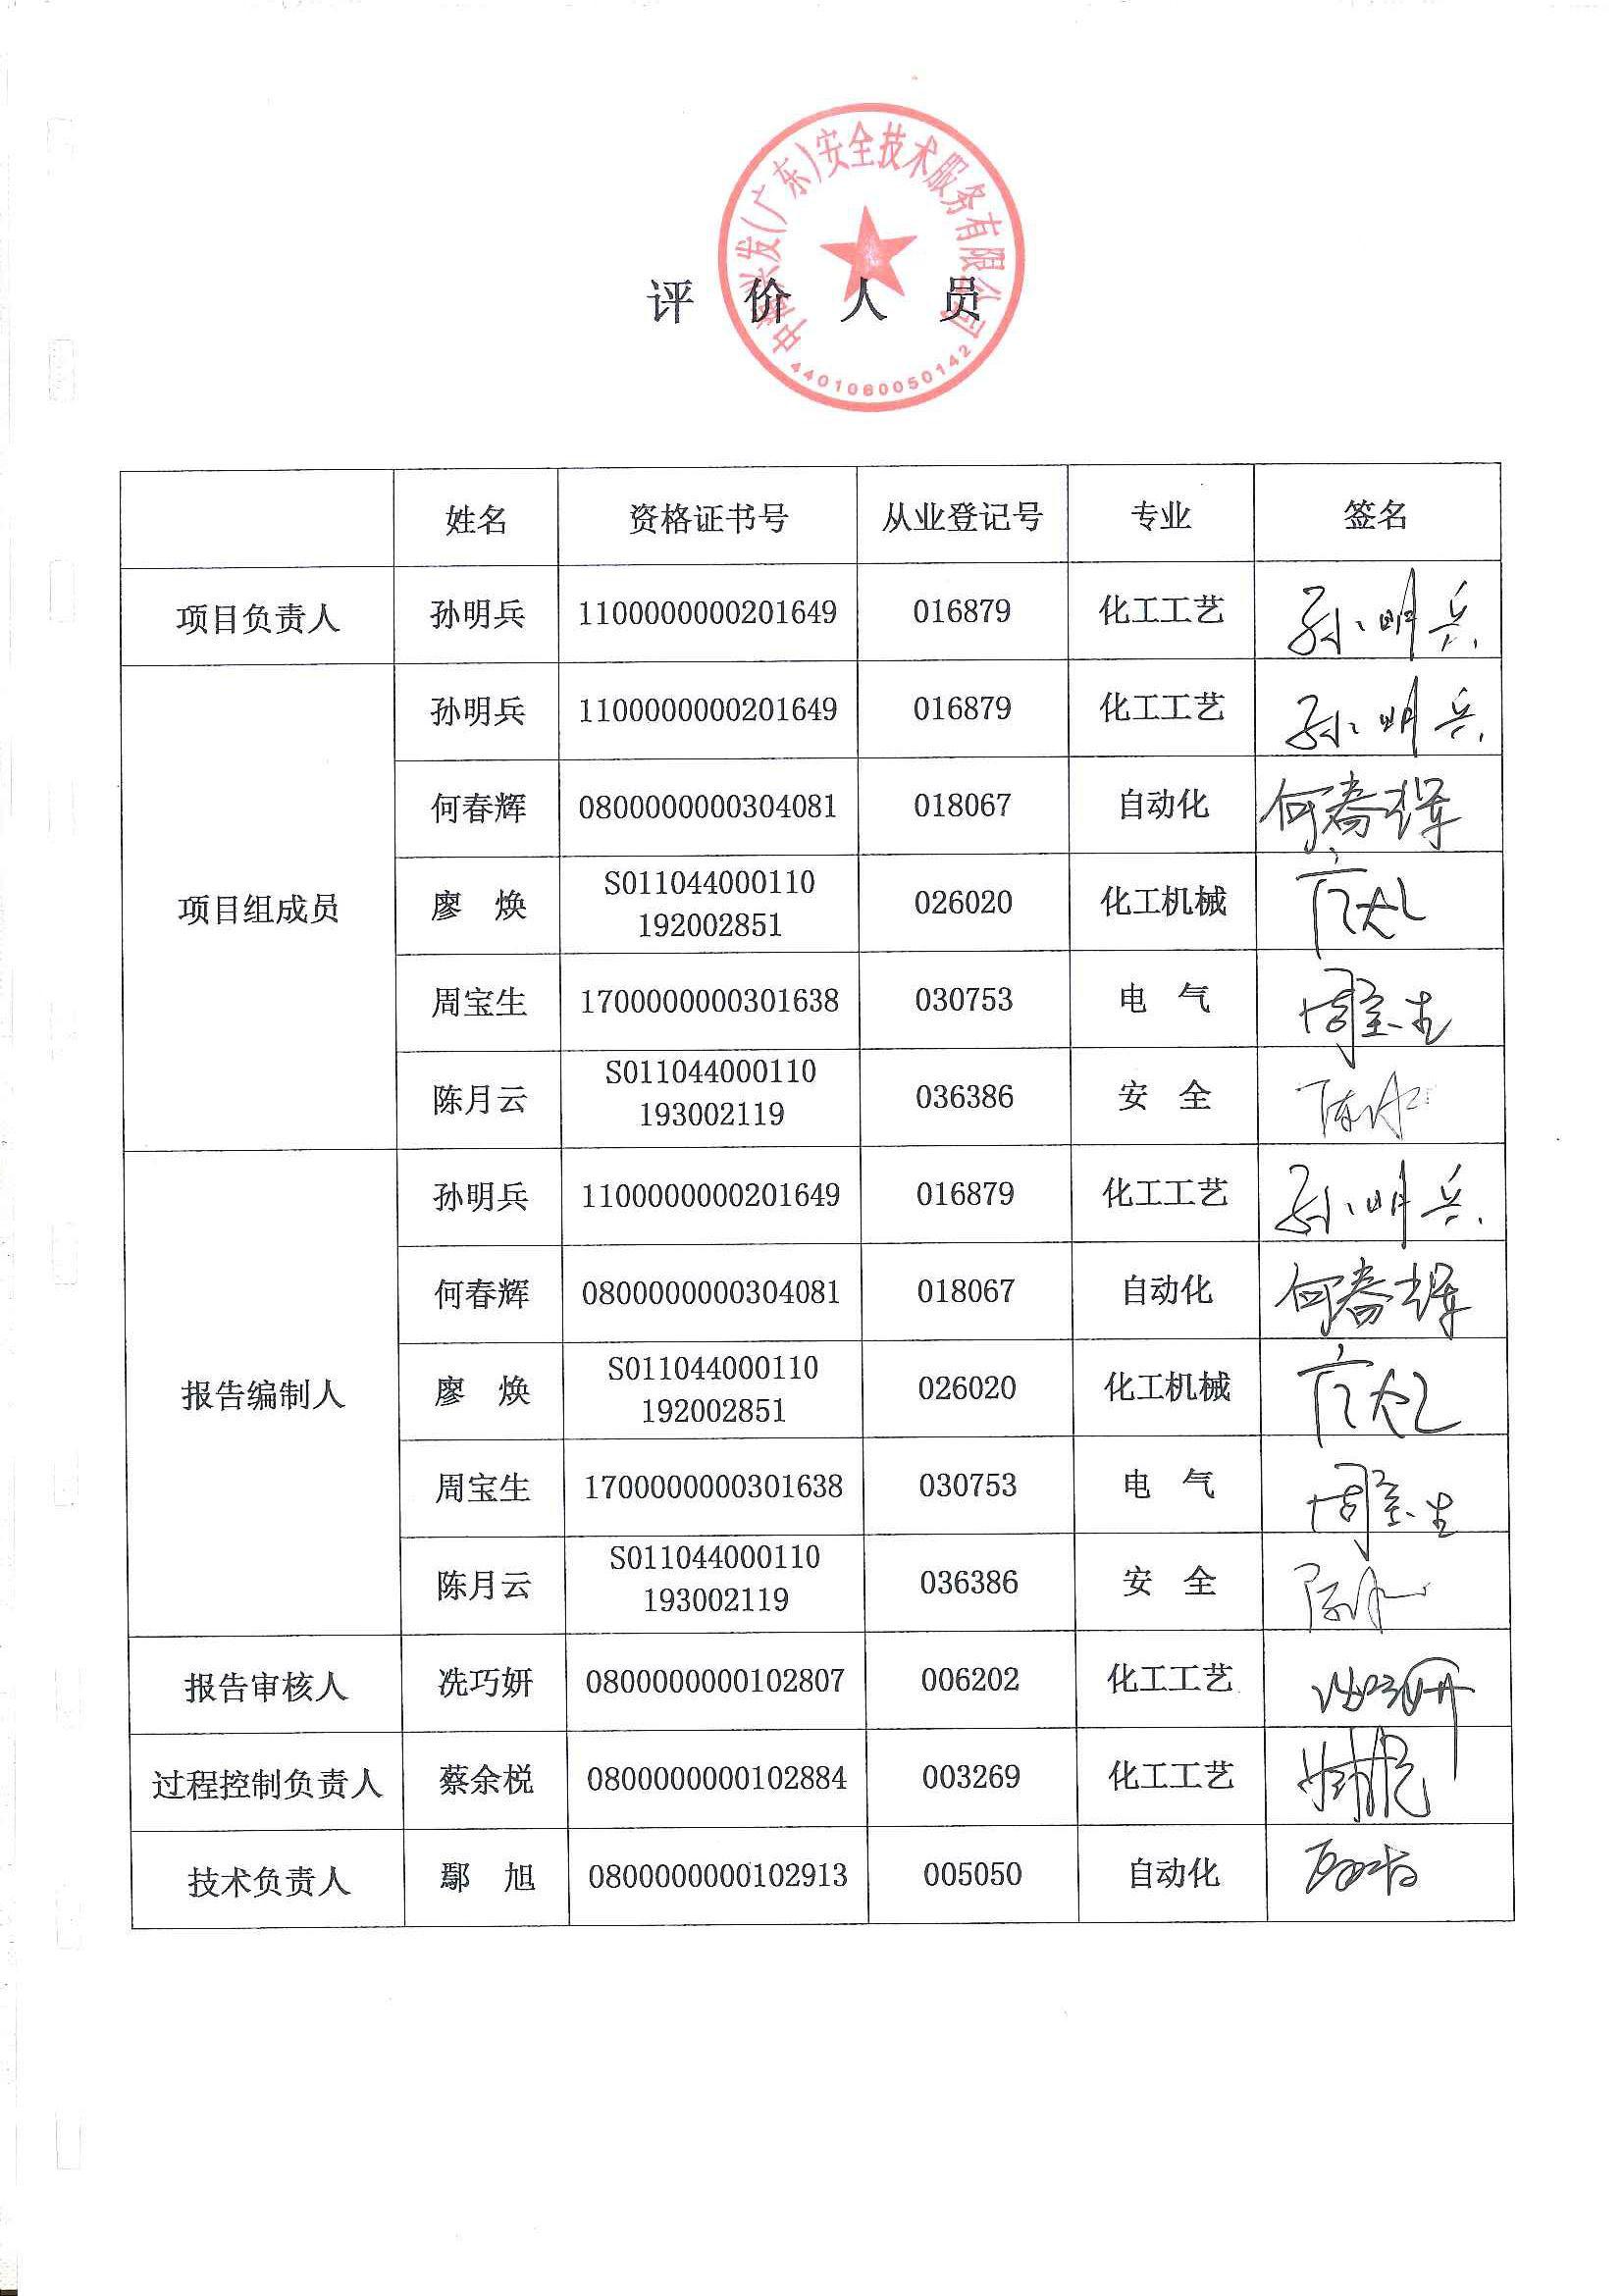 评价人员
发(广东)安全技术服务有限公司
4401060050142
姓名 资格证书号 从业登记号 专业 签名
项目负责人 孙明兵 1100000000201649 016879 化工工艺 孙明兵
项目组成员 孙明兵 1100000000201649 016879 化工工艺 孙明兵
何春辉 0800000000304081 018067 自动化 何春辉
廖 焕 S011044000110
192002851 026020 化工机械
周宝生 1700000000301638 030753 电 气 周宝生
陈月云 S011044000110
193002119 036386 安 全
报告编制人 孙明兵 1100000000201649 016879 化工工艺 孙明兵
何春辉 0800000000304081 018067 自动化 何春辉
廖 焕 S011044000110
192002851 026020 化工机械
周宝生 1700000000301638 030753 电 气 周宝生
陈月云 S011044000110
193002119 036386 安 全
报告审核人 冼巧妍 0800000000102807 006202 化工工艺
过程控制负责人 蔡余悦 0800000000102884 003269 化工工艺
技术负责人 鄢 旭 0800000000102913 005050 自动化